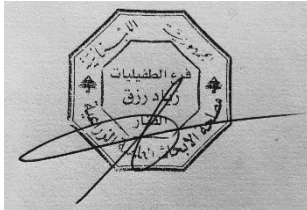 الجمهورية اللبنانية
فرع الطفيليات
زياد رزق
الفنار
مصلحة الابحاث العلمية الزراعية